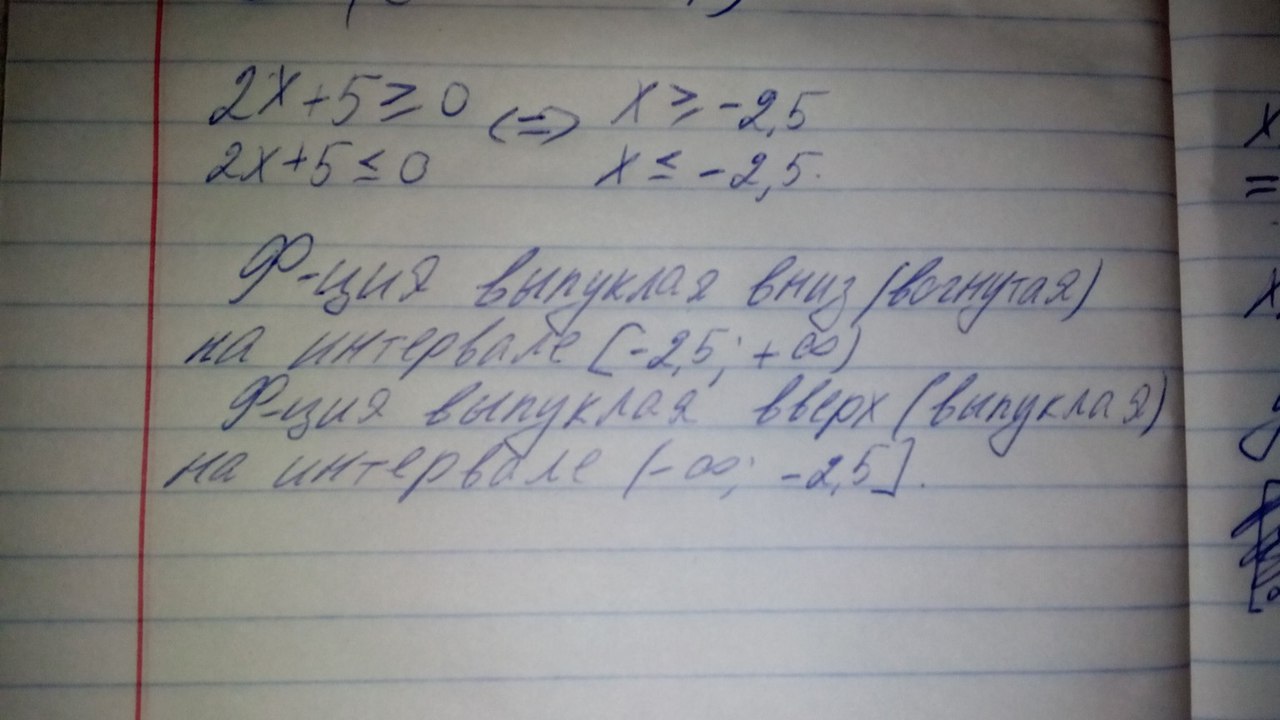 2x+5≥0 <=> x≥-2,5
2x+5≤0 x≤-2,5.
Ф-ция выпуклая вниз (вогнутая)
на интервале [-2,5; +∞)
Ф-ция выпуклая вверх (выпуклая)
на интервале (-∞; -2,5].